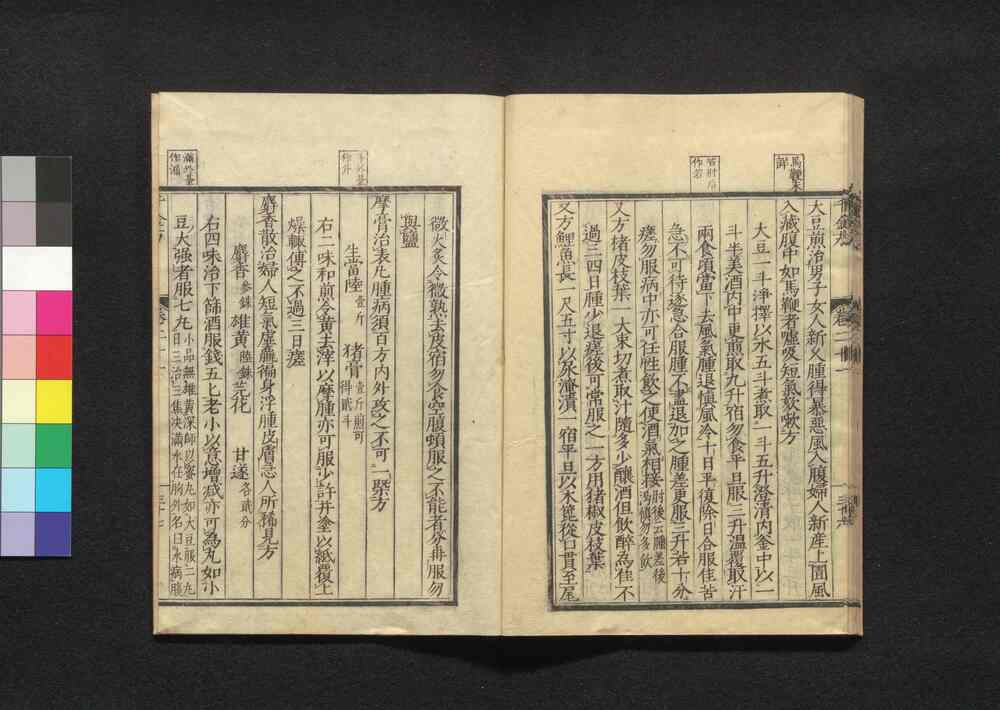 馬鞭本
大豆煎治男子女人新久腫得暴惡風入腹婦人新産上圊風
入藏腹中如馬鞭者噓吸短氣欬嗽方
大豆一斗淨擇以水五斗煮取一斗五升澄清内釜中以一
斗半美酒内中更煎取九升宿勿食平旦服三升温覆取汗
兩食頃當下去風氣腫退愼風冷十日平復除日合服佳若
急不可待逐急合服腫不盡退加之腫差更服三升若十分
瘥勿服病中亦可任性飲之使酒氣相接肘後云腫差後
渴愼勿多飲
又方楮皮枝葉一大束切煮取汁隨多少釀酒但飲醉為佳不
過三四日腫少退瘥後可常服之一方用猪椒皮枝葉
又方鯉魚長一尺五寸以尿漬一宿平旦以木從口貫至尾
微火炙令微熟去皮宿勿食空腹頓服之不能者分再服勿
與鹽
摩膏治表凡腫病須百方内外攻之不可一槩方
生商陸壹斤 猪膏壹斤煎可
得貳斗
右二味和煎令黄去滓以摩腫亦可服少許并塗以紙覆上
燥輙傅之不過三日瘥
麝香散治婦人短氣虛羸徧身浮腫皮膚急人所稀見方
麝香參銖 雄黄陸銖 芫花 甘遂各貳分
右四味治下篩酒服錢五匕老小以意增減亦可為丸如小
豆大强者服七丸小品無雄黄深師以蜜丸如大豆服二丸
日三治三集决滿水在胸外名曰水病腹